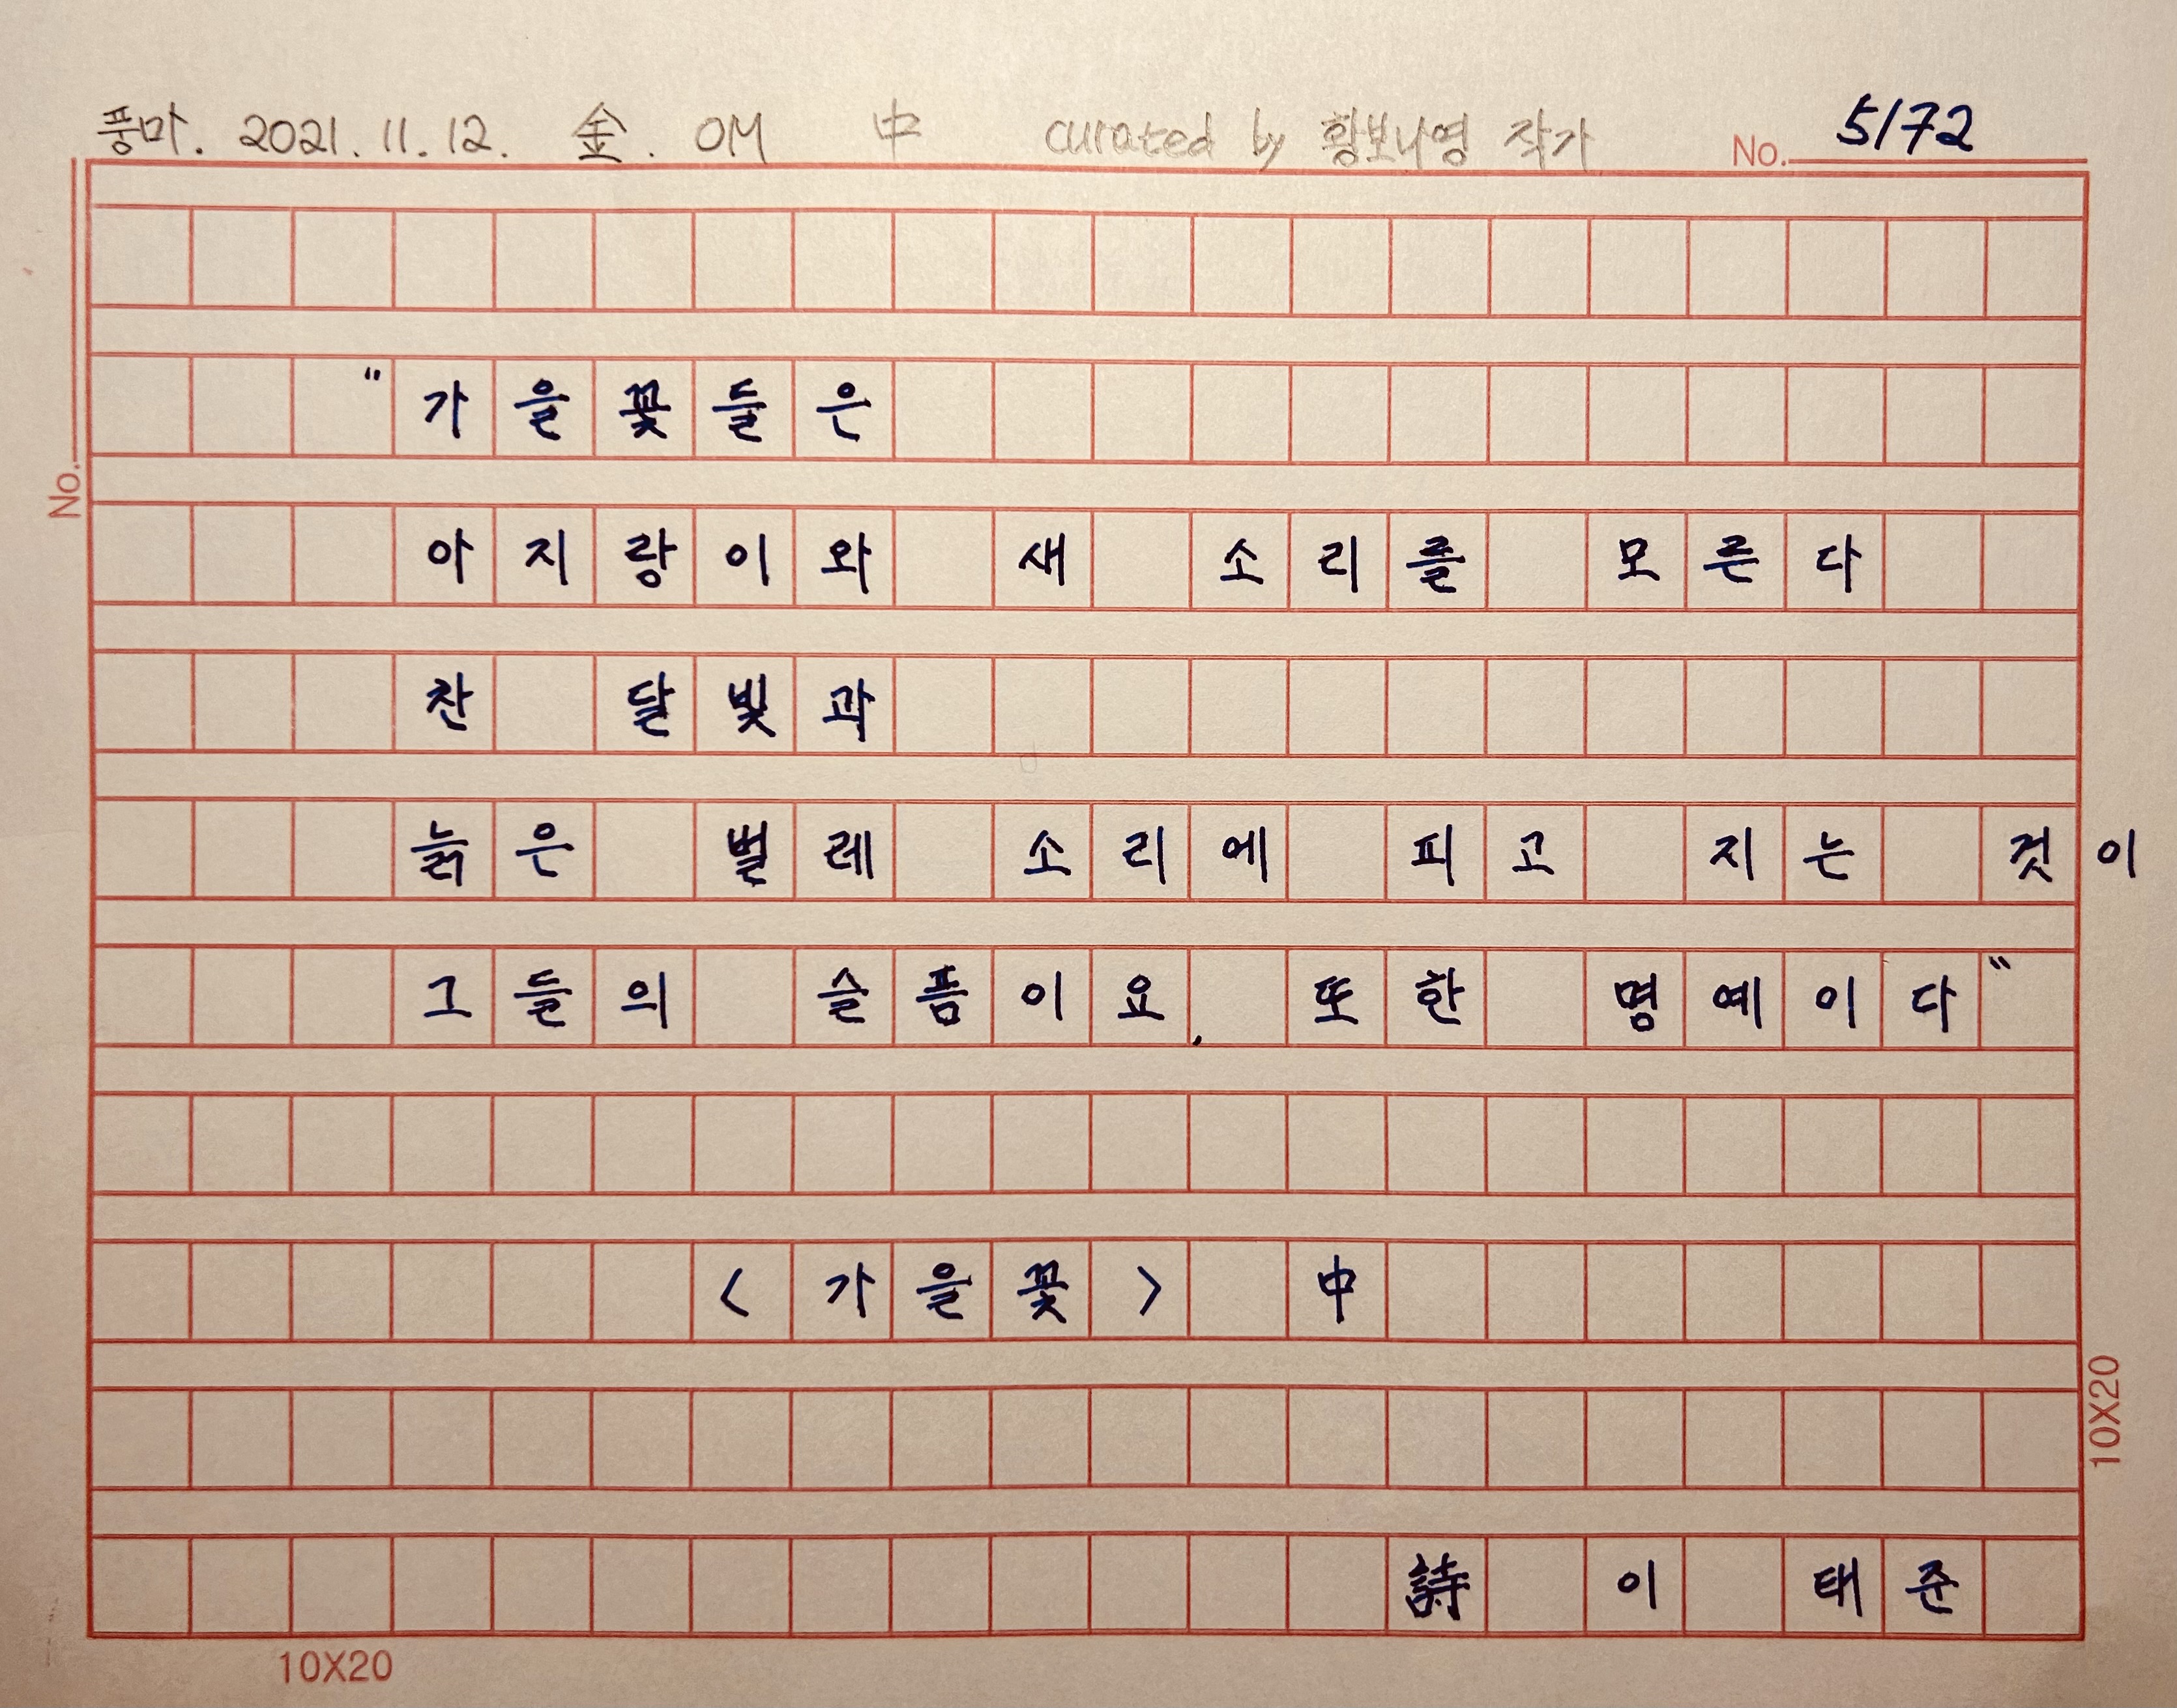 풍마. 2021. 11. 12. 金. OM 中 curated by 황보나영 작가 No. 5172
"가을꽃들은
아지랑이와 새 소리를 모른다
찬 달빛과
늙은 벌레 소리에 피고 지는 것이
그들의 슬픔이요, 또한 명예이다"
<가을꽃> 中
詩 이 태준
No.
10X20
10X20